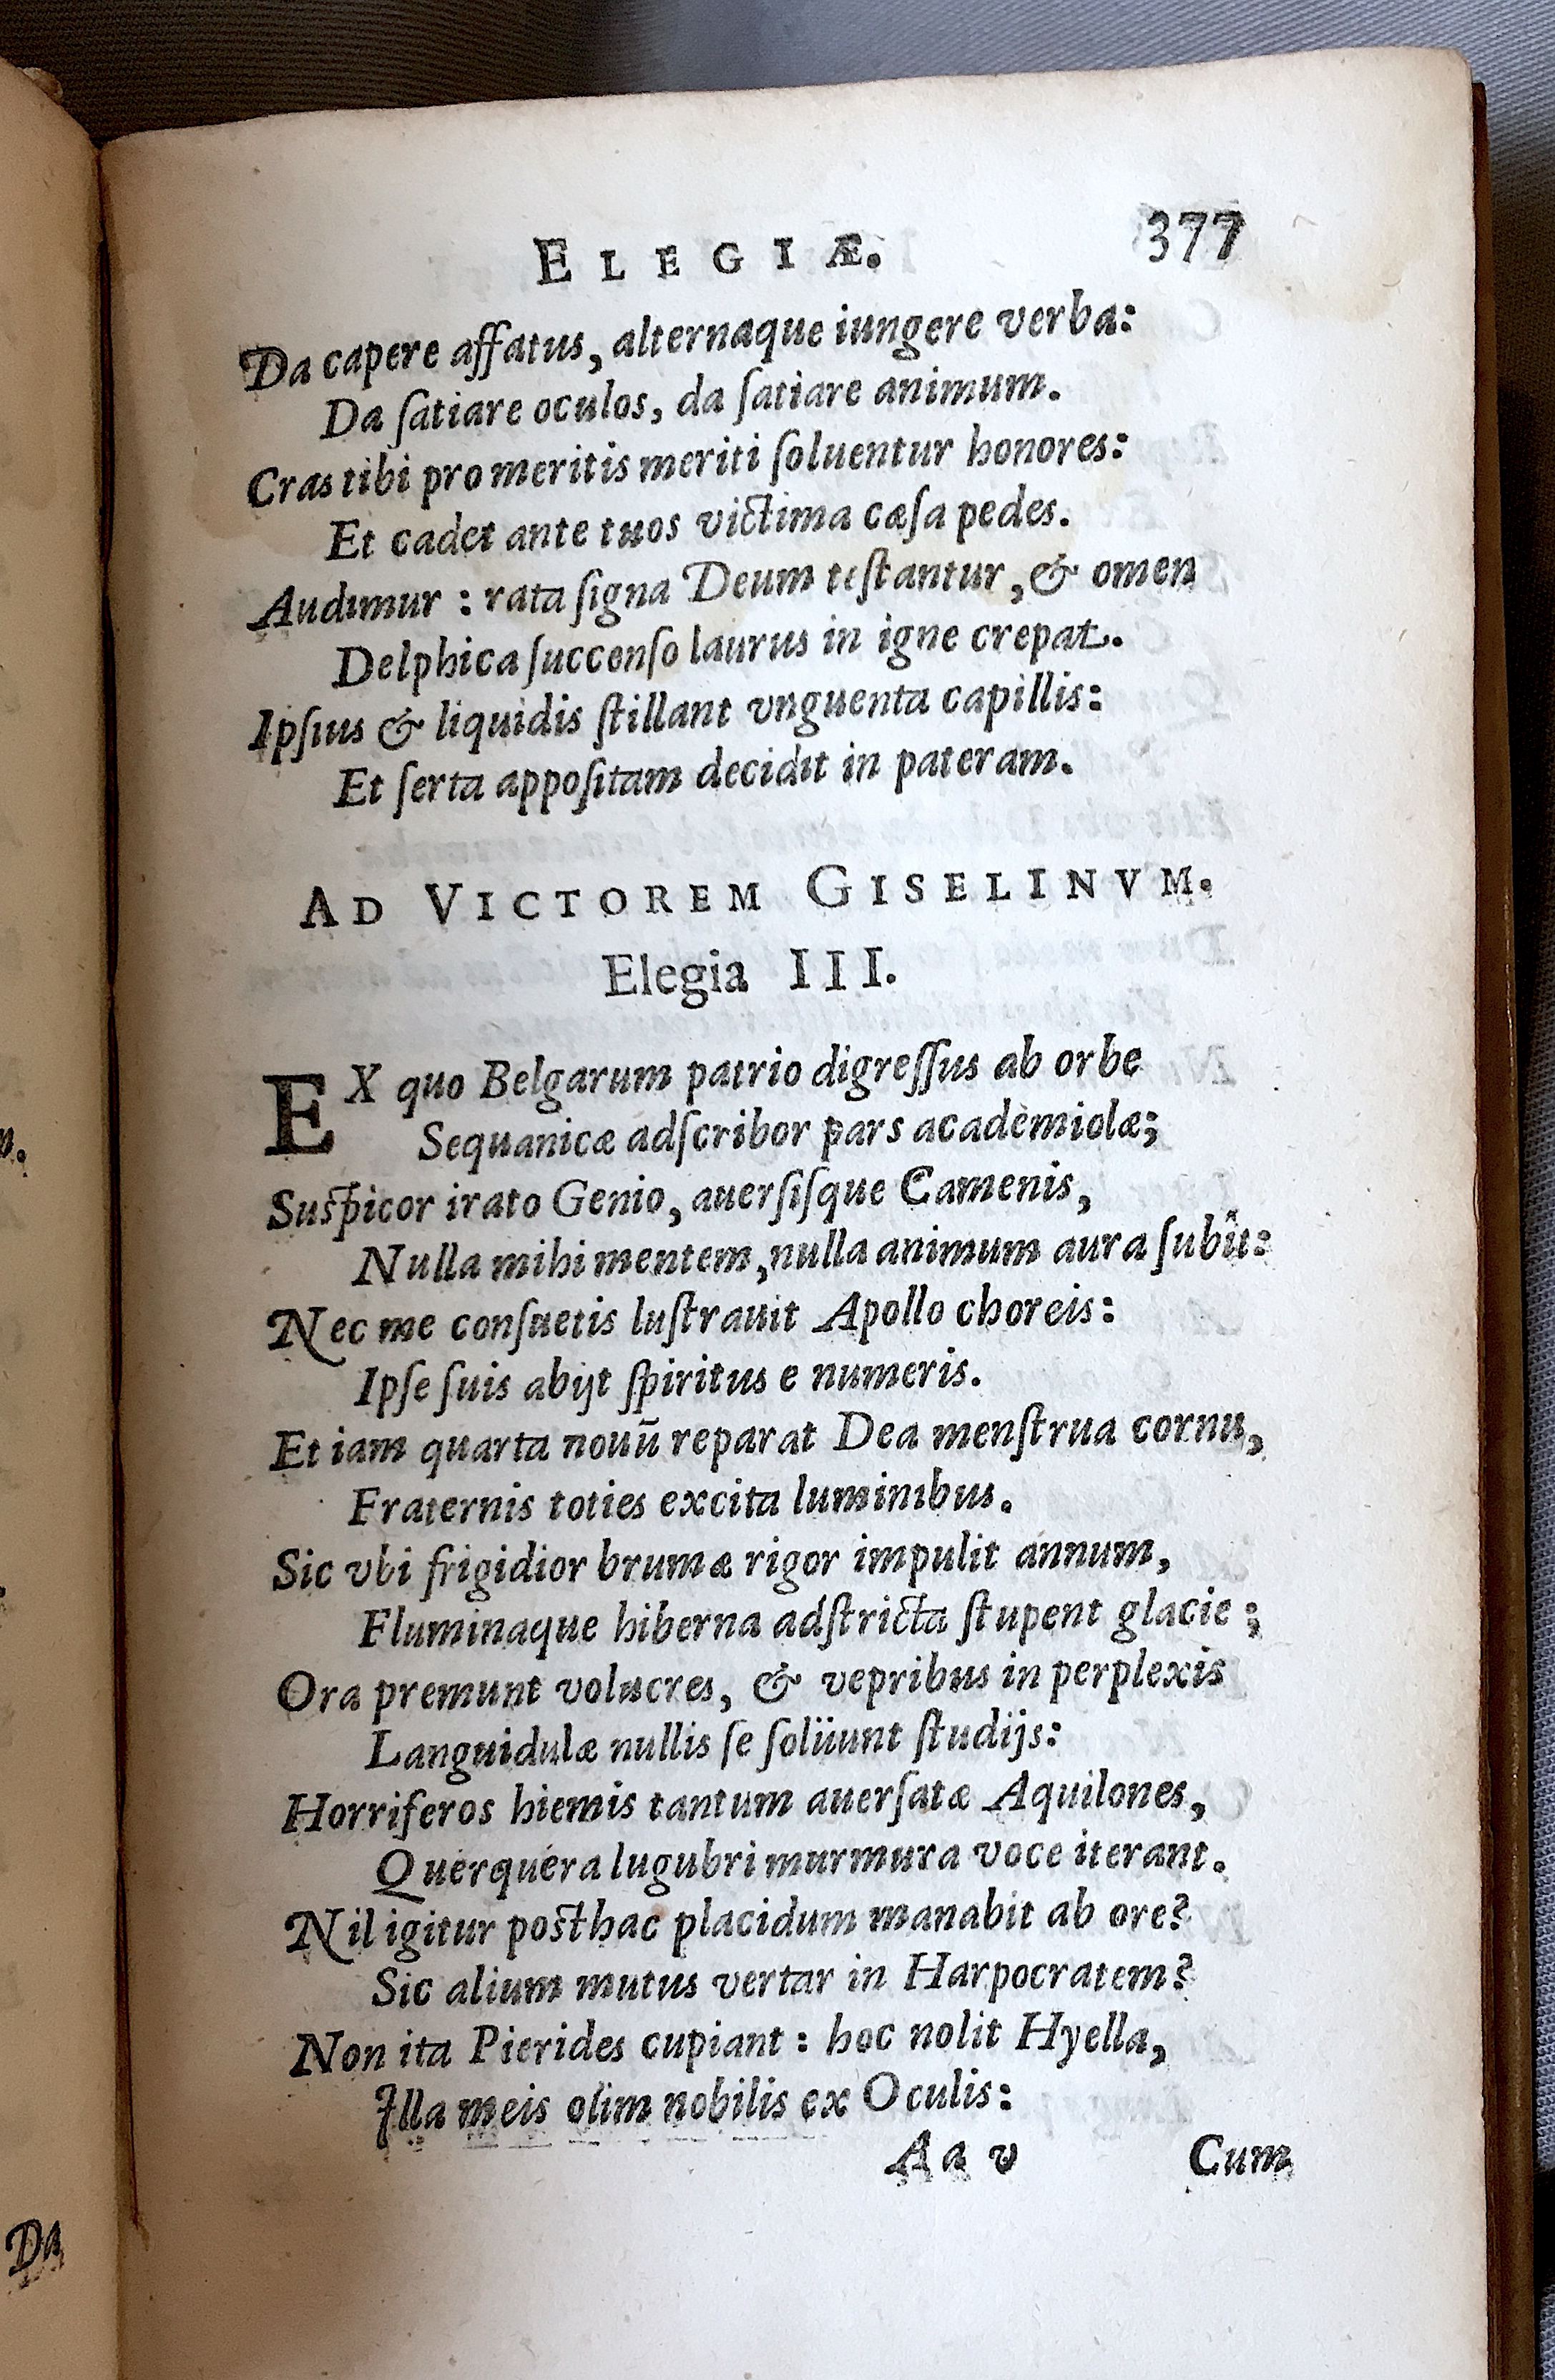 ELEGIÆ. 377
Da capere affatus, alternaque iungere verba:
Da ſatiare oculos, da ſatiare animum.
Cras tibi pro meritis meriti ſoluentur honores:
Et cadet ante tuos victima cæſa pedes.
Audimur : rata ſigna Deum teſtantur, & omen
Delphica ſuccenſo laurus in igne crepat.
Ipſius & liquidis ſtillant vnguenta capillis:
Et ſerta appoſitam decidit in pateram.
AD VICTOREM GISELINVM.
Elegia III.
EX quo Belgarum patrio digreſſus ab orbe
Sequanicæ adſcribor pars academiolæ;
Suſpicor irato Genio, auerſiſque Camenis,
Nulla mihi mentem, nulla animum aura ſubît:
Nec me conſuetis luſtrauit Apollo choreis:
Ipſe ſuis abijt ſpiritus e numeris.
Et iam quarta nouū reparat Dea menſtrua cornu,
Fraternis toties excita luminibus.
Sic vbi frigidior brumæ rigor impulit annum,
Fluminaque hiberna adſtricta ſtupent glacie ;
Ora premunt volucres, & vepribus in perplexis
Languidulæ nullis ſe ſolüunt ſtudijs:
Horriferos hiemis tantum auerſatæ Aquilones,
Querquera lugubri murmura voce iterant.
Nil igitur poſthac placidum manabit ab ore?
Sic alium mutus vertar in Harpocratem?
Non ita Pierides cupiant : hoc nolit Hyella,
Illa meis olim nobilis ex Oculis:
Aa v Cum
Da